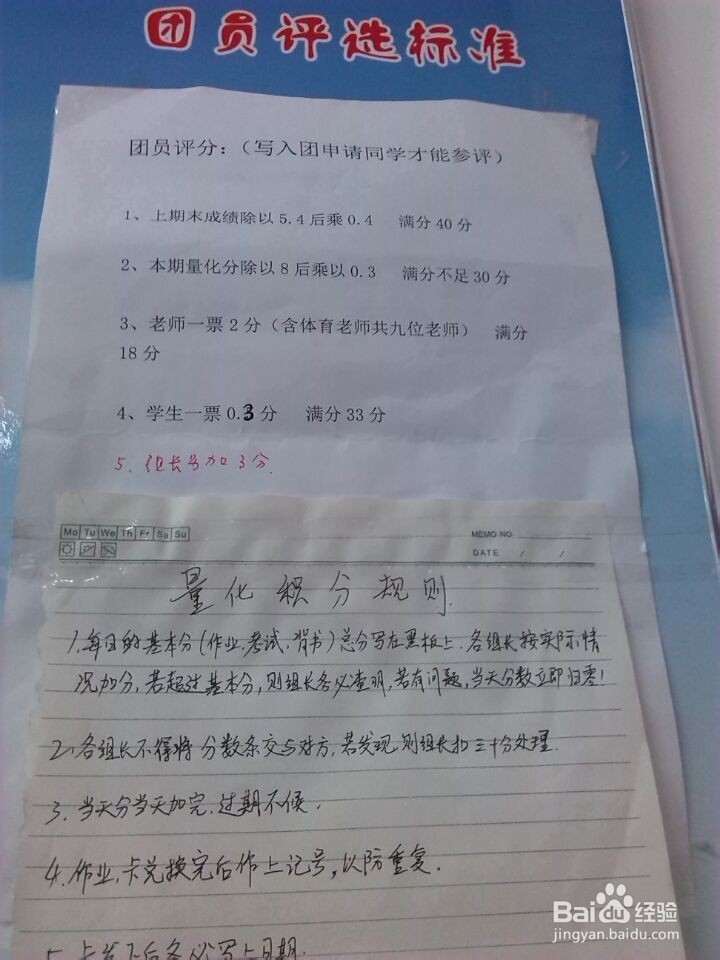 团员评选标准
团员评分：（写入团申请同学才能参评）
1、上期末成绩除以 5.4 后乘 0.4 满分 40 分
2、本期量化分除以 8 后乘以 0.3 满分不足 30 分
3、老师一票 2 分（含体育老师共九位老师） 满分
18 分
4、学生一票 0.3 分 满分 33 分
5、组长另加3分.
Mo Tu We Th Fr Sa Su
MEMO NO.
DATE / /
量化积分规则.
1.每日的基本分(作业,考试,背书)总分写在黑板上.各组长按实际情
况加分,若超过基本分,则组长务必查明,若有问题,当天分数立即归零!
2.各组长不得将分数条交与对方,若发现,则组长扣三十分处理.
3.当天分当天加完,过期不候.
4.作业,卡兑换完后作上记号,以防重复.
5.卡发下后务必写上日期.
Baidu 经验
jingyan.baidu.com